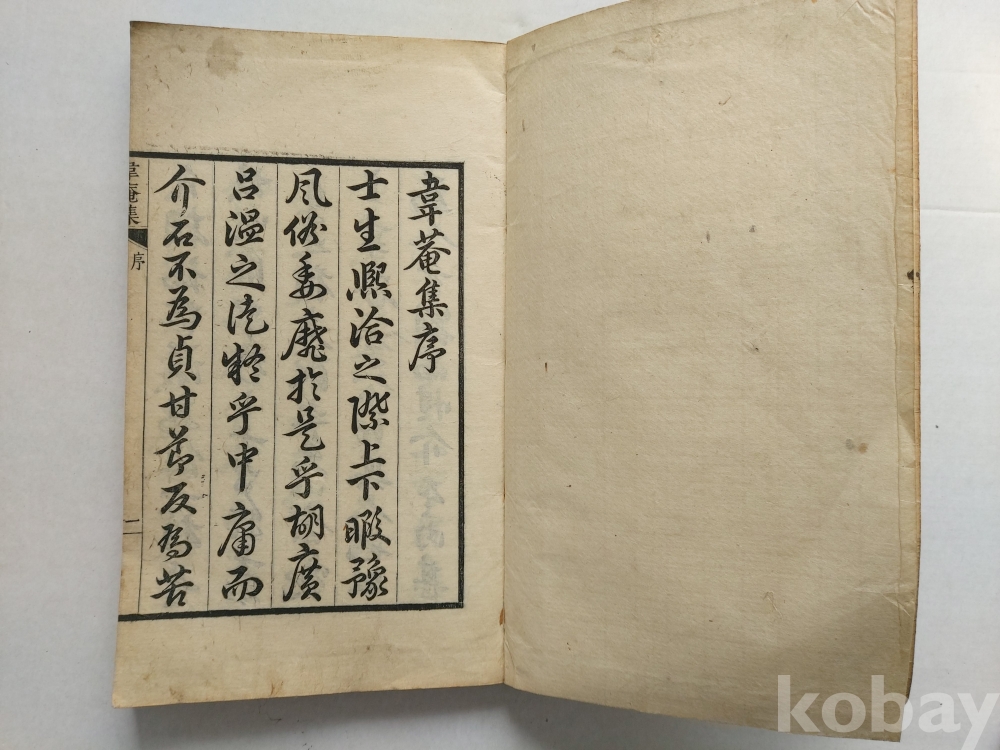 韋菴集序
士生熙洽之際上下暇豫
風俗委靡於是乎胡廣
呂溫之乎中庸而
介石不為貞甘節反為苦
韋庵集 序 一
kobay